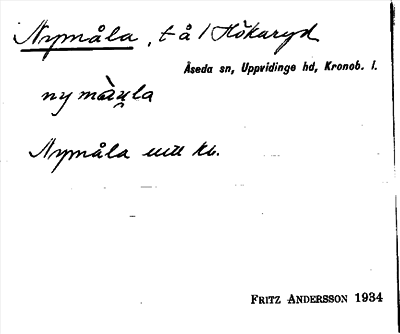 Nymåla, t å / Hökaryd
Åseda sn, Uppvidinge hd, Kronob. l.
ny màu̯la
Nymåla utt kb.
FRITZ ANDERSSON 1934